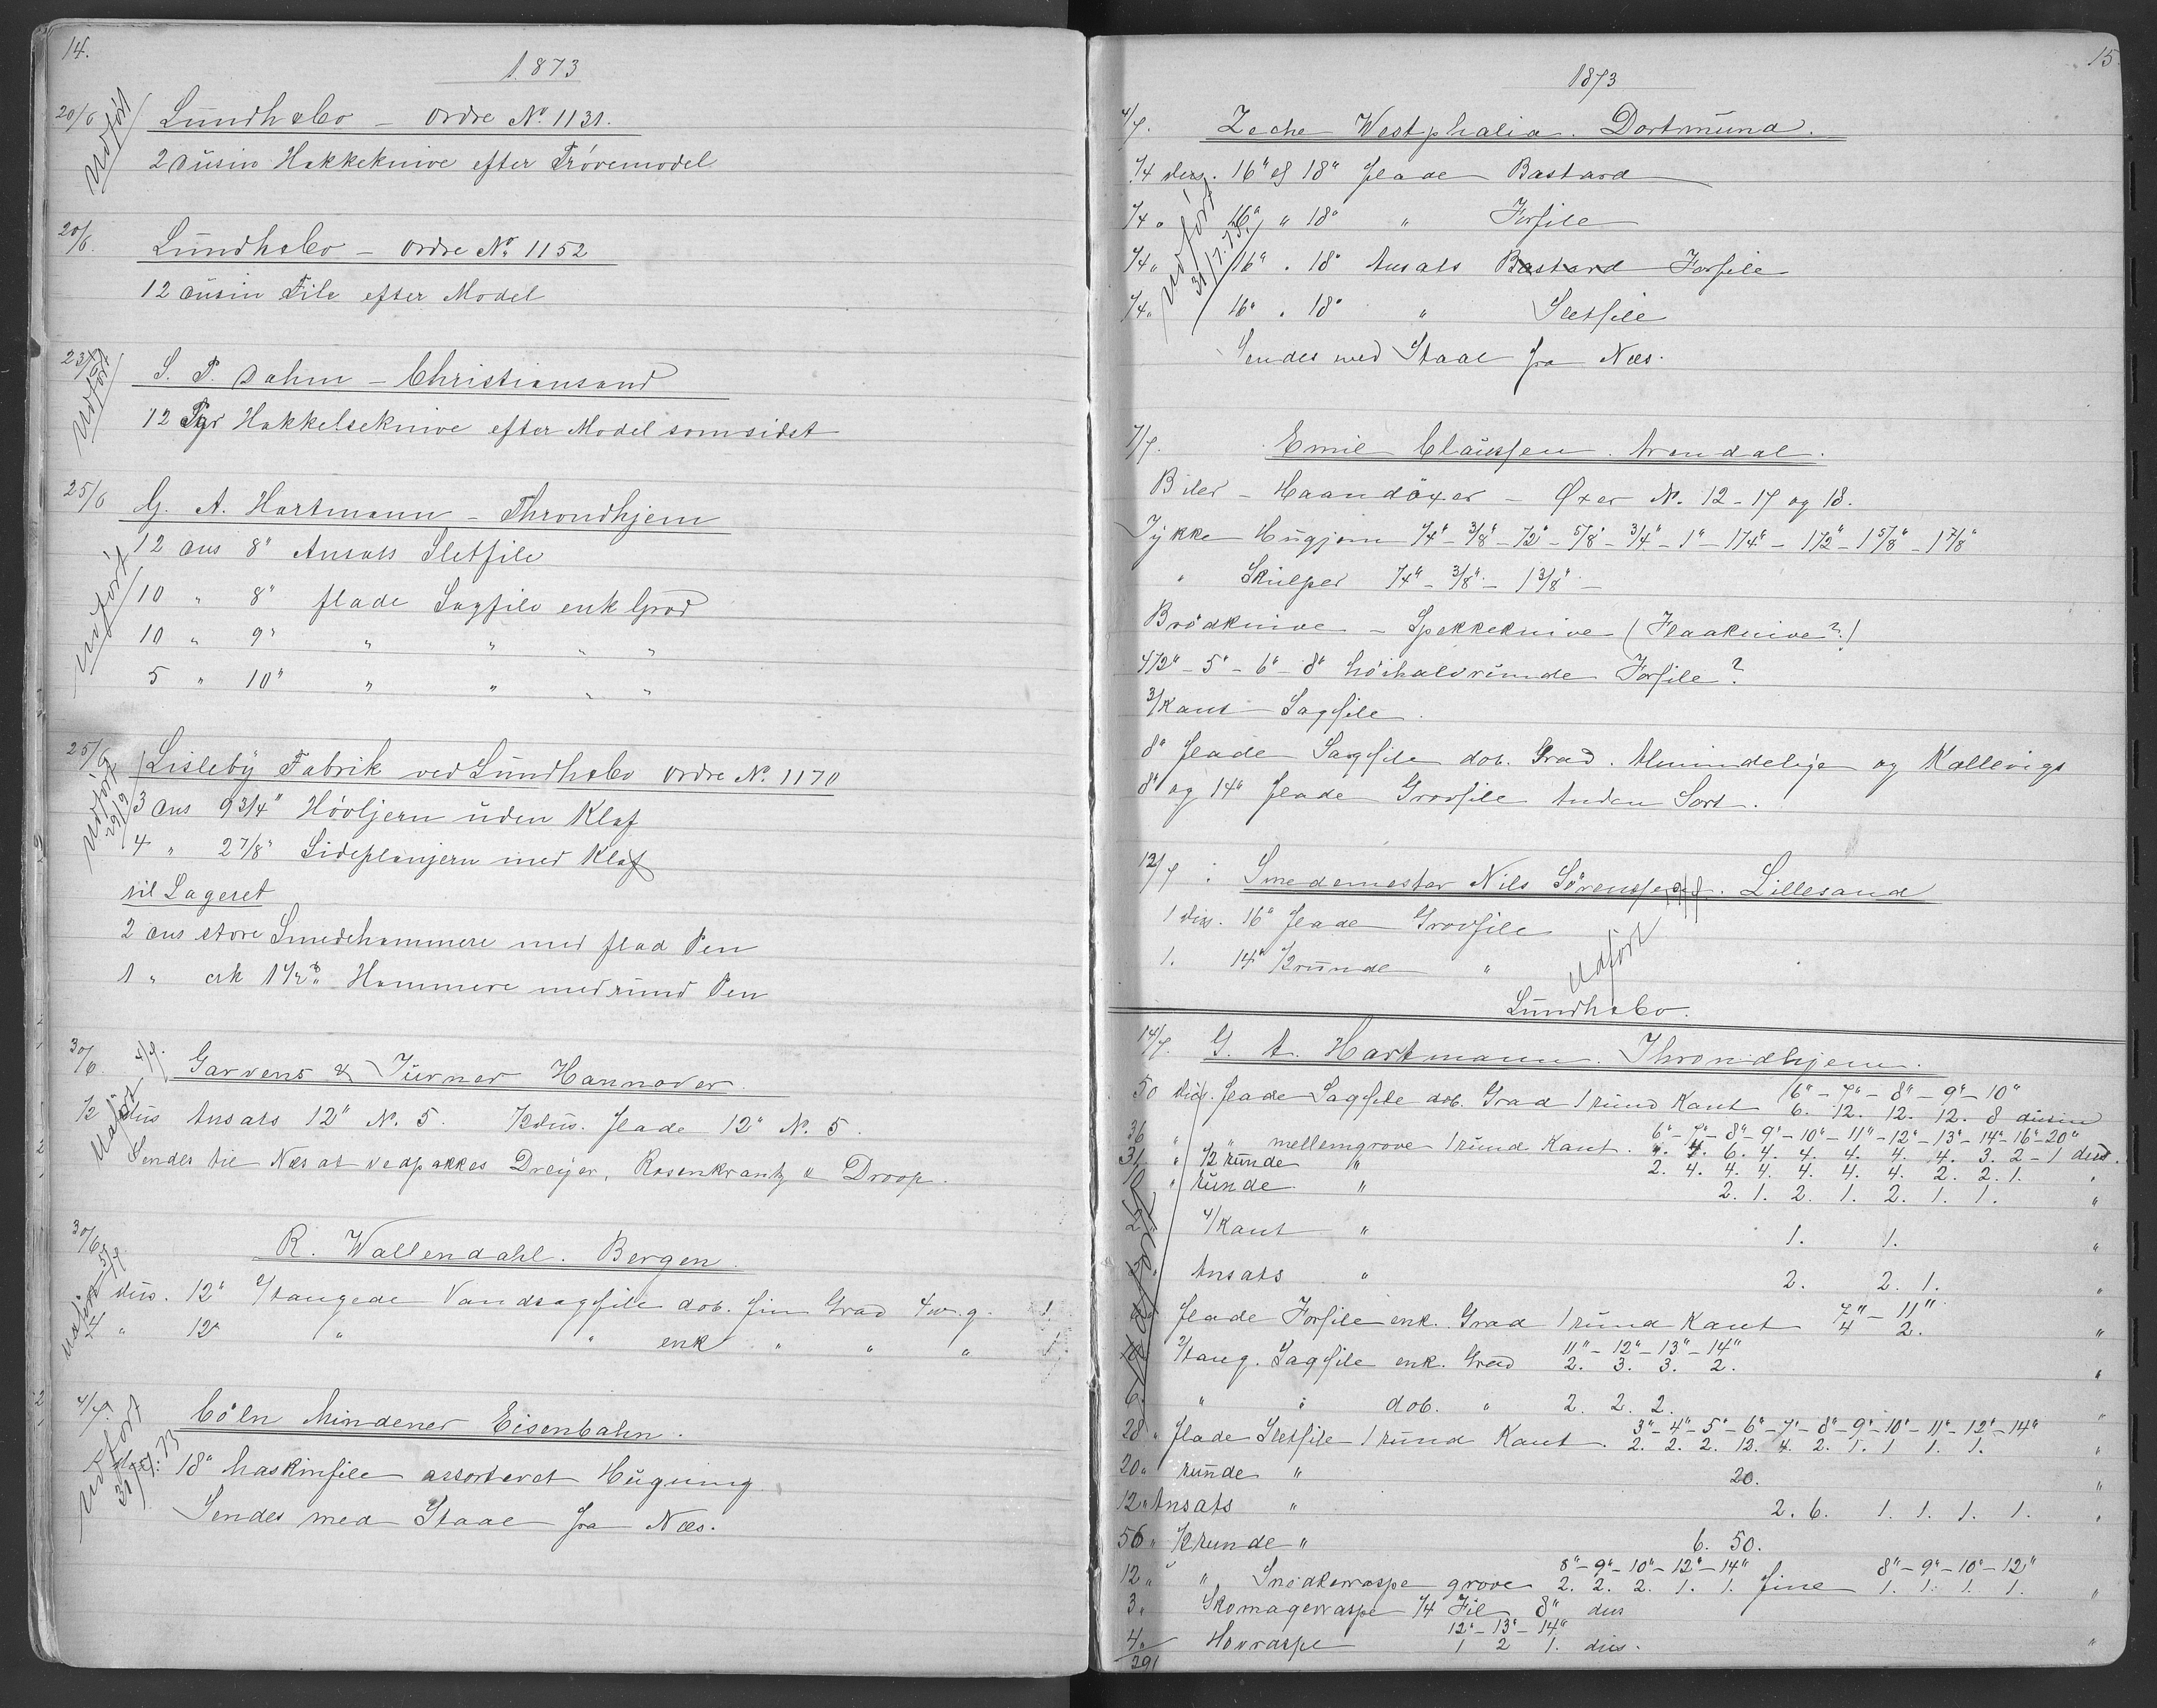 14.
1873
20/6 Udført Lundhsbo – Ordre No. 1131.
2 Dusin Hakkeknive efter Prøvemodel
20/6. Lundhsbo – Ordre No. 1152
12 Dusin File efter Model
23/6 Udført S. P. Dahm – Christiansand
12 Hakkelseknive efter Model som sidst
25/6 G. A. Hartmann – Throndhjem
12 Dus 8" Ansats Sletfile
Udført 10 " 8" flade Sagfile enk Grad
10 " 9" " " " "
5 " 10" " " " "
25/6 Lisleby Fabrik ved Lundhsbo Ordre No. 1170
Udført 29/9 3 Dus 9 3/4" Høvljern uden Klaf
4 " 2 7/8" Sideplanjern med Klaf
til Lageret
2 Dus store Smedehammere med flad Pen
1 " 1 1/2 Hammere med rund Pen
30/6 Udført 4/7. Garvens & Turner Hannover
1/2 dus Ansats 12" No. 5. 1/2 dus. flade 12" No. 5.
Sendes til Næs at vedpakkes Dreyer, Rosenkrantz & Droop.
30/6 Udført 5/7 R. Wallendahl. Bergen
dus. 12" 2/tangede Vandsagfile dob. fiin Grad 1
4 " 12" " " enk " " " 1
4/7. Udført 31/7.73 Cöln Mindener Eisenbahn.
18" Maskinfile assorteret Hugning
Sendes med Staal fra Næs.
15
1873
4/7. Zeche Westphalia. Dortmund.
1/4 dus. 16" & 18" flade Bastard
1/4 " 16" " 18" " Forfile
Udført 31/7.73.
1/4 " 16" " 18" Ansats Bastard Forfile
1/4 " 16" " 18" " Sletfile
Sendes med Staal fra Næs.
7/7. Emil Claussen. Arendal.
Biler – Haandøxer – Øxer No. 12 – 17 og 18.
Tykke Hugjern 1/4" – 3/8" – 1/2" – 5/8" – 3/4" – 1" – 1 1/4" – 1 1/2" – 1 5/8" – 1 7/8"
" Skulper 1/4" – 3/8" – 1 3/8" –
Brødknive – Spekkeknive (Flaaknive?)
4 1/2" – 5" – 6" – 8" høihalvrunde Forfile?
3/Kant – Sagfile.
8" flade Sagfile dob. Grad. Almindelige og Kallevigs
8" og 14" flade Grovfile Anden Sort.
12/7. Smedemester Nils Sørenssen. Lillesand
1 dus. 16" flade Grovfile
1. 14" 1/2 runde "
Udført
Lundhsbo.
14/7. G. A. Hartmann. Throndhjem.
50 dus. flade Sagfile dob. Grad 1 rund Kant 6" – 7" – 8" – 9" – 10"
6. 12. 12. 12. 8 dusin
36 " " mellemgrove 1 rund Kant. 6" – 7" – 8" – 9" – 10" – 11" – 12" – 13" – 14" – 16" – 20"
4. 6. 4. 4. 4. 4. 4. 3. 2 – 1 dus.
31 " 1/2 runde " 2. 4. 4. 4. 4. 4. 4. 2. 2. 1. "
10 " runde " 2. 1. 2. 1. 2. 1. 1. "
2 4/Kant " 1. 1. "
Udført
Ansats " 2. 2. 1. "
flade Forfile enk. Grad 1 rund Kant 7" – 11"
4 2. "
2/tang. Sagfile enk. Grad 11" – 12" – 13" – 14"
2. 3. 3. 2. "
6. " " dob. " 2. 2. 2. "
28 " flade Sletfile 1 rund Kant. 3" – 4" – 5" – 6" – 7" – 8" – 9" – 10" – 11" – 12" – 14"
2. 2. 2. 12. 4. 2. 1. 1 1. 1. "
20 " runde " 20. "
12 " Ansats " 2. 6. 1. 1. 1. 1. "
56 " 1/2 runde " 6. 50.
12 " " Snedkerraspe grove 8" – 9" – 10" – 12" – 14" fine 8" – 9" – 10" – 12"
2. 2. 2. 1. 1. 1. 1. 1. 1. "
3 " Skomagerraspe 1/4 Fil 8" dus
4 " Hovraspe 12" – 13" – 14"
1 2 1. dus. "
291